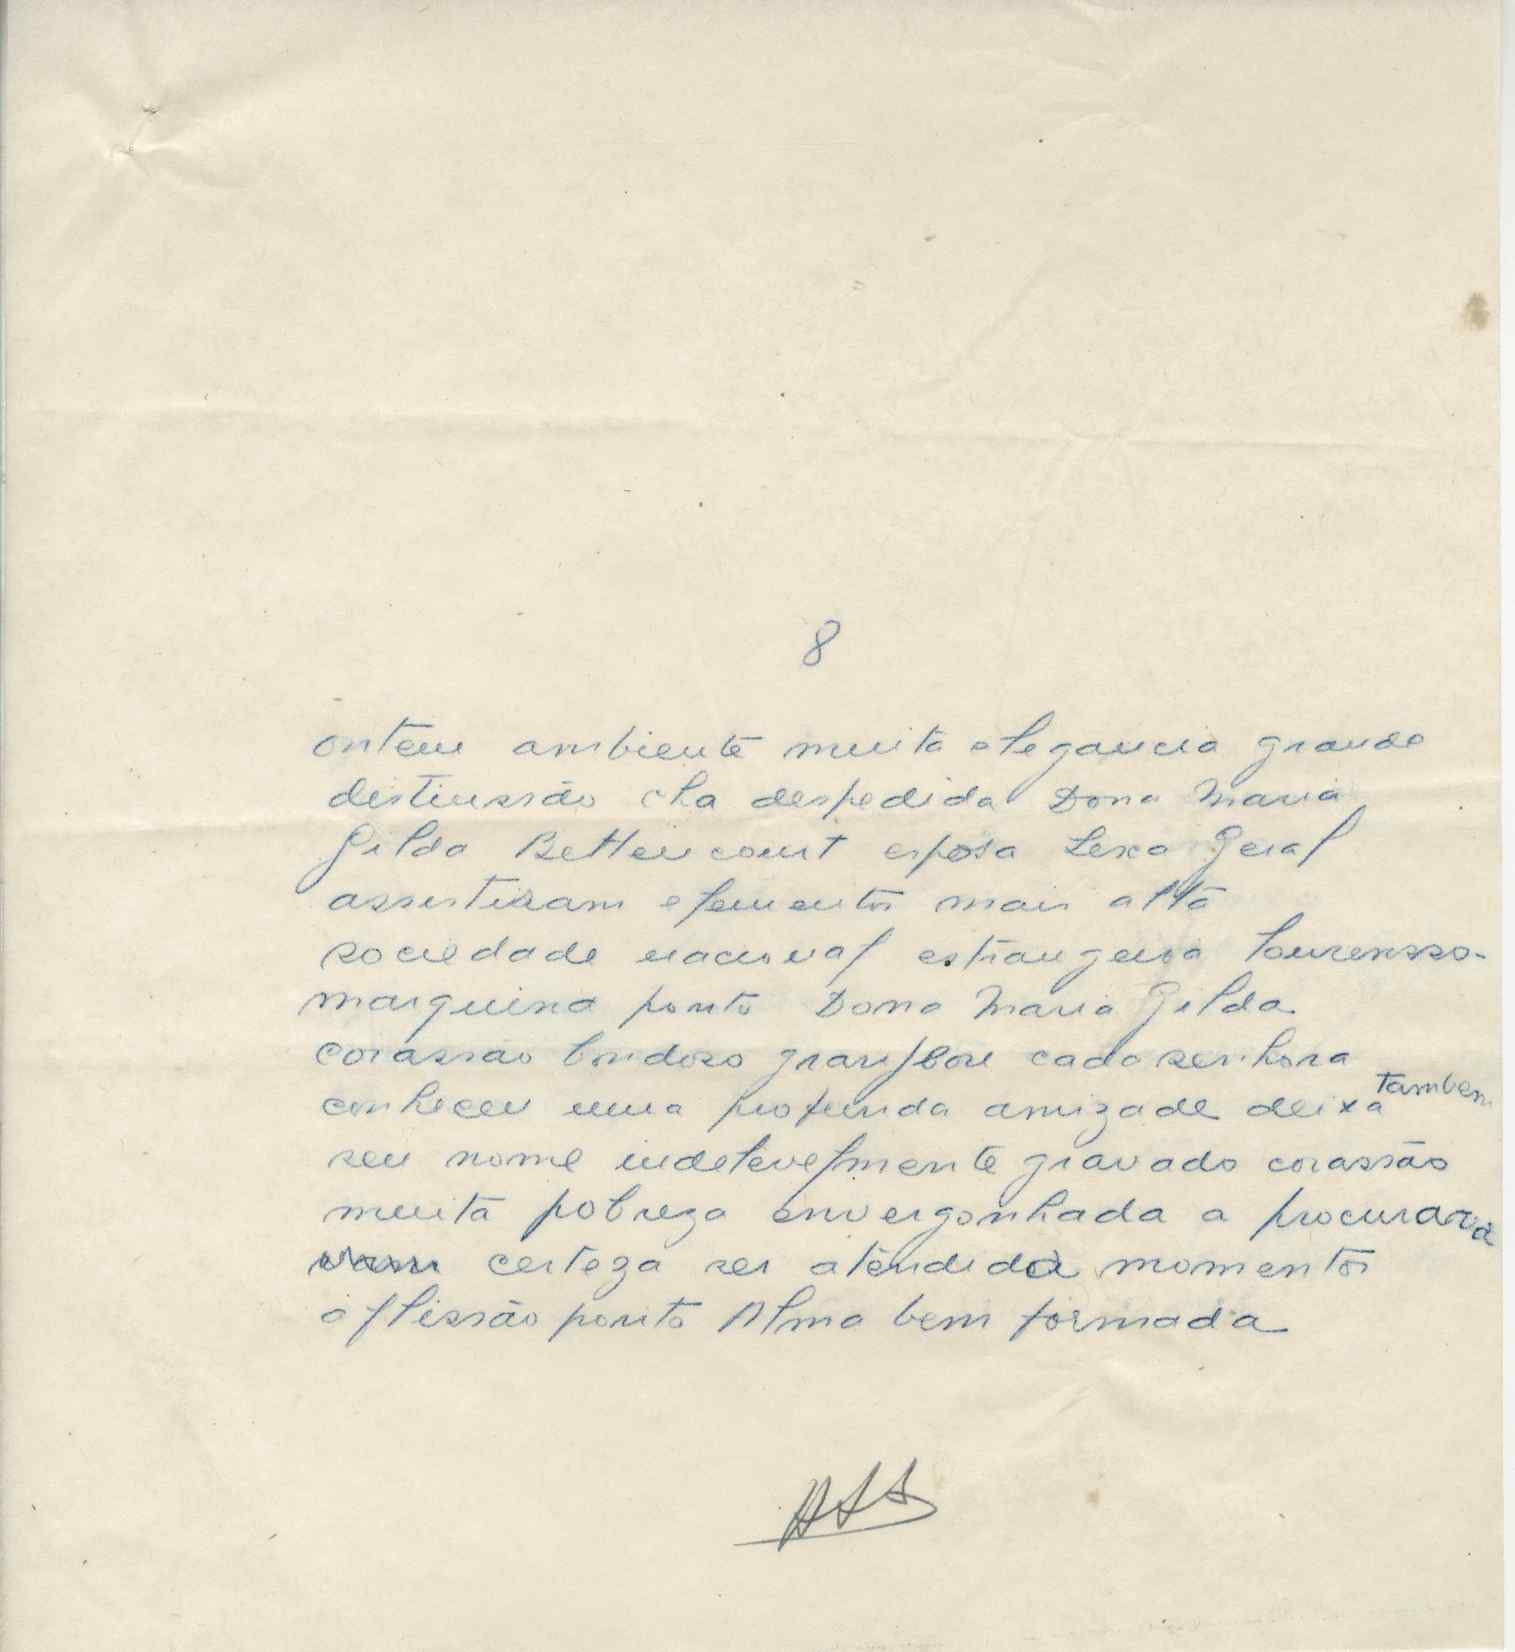 8
ontem ambiente muita elegancia grande
distinssão cha despedida Dona Maria
Gilda Bettencourt esposa Lexa Geral
assistiram elementos mais alta
sociedade nacional estrangeira lourensso-
marquina ponto Dona Maria Gilda
corassao bondoso cada senhora
conheceu uma profunda amizade deixa tambem
seu nome indelevelmente gravado corassão
muita pobreza envergonhada a procurava
certeza ser atendida momentos
aflissão ponto Alma bem formada